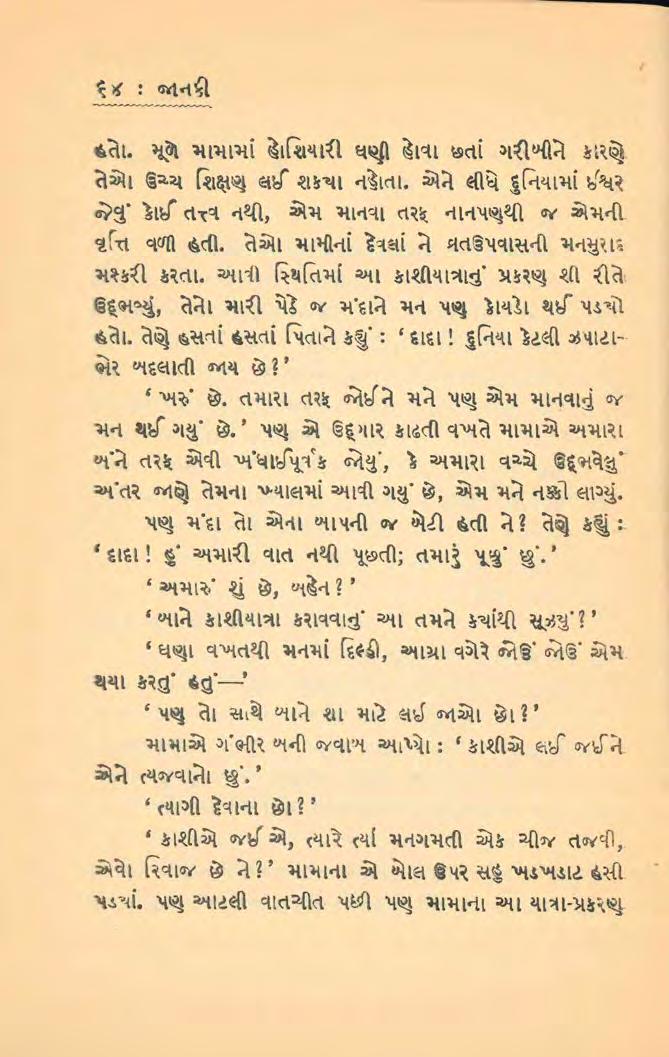 ૬૪ : જાનકી
હતો. મૂળે મામામાં હોશિયારી ઘણી હોવા છતાં ગરીબીને કારણે
તેઓ ઉચ્ચ શિક્ષણ લઈ શક્યા નહોતા. એને લીધે દુનિયામાં ઈશ્વર
જેવું કોઈ તત્ત્વ નથી, એમ માનવા તરફ નાનપણથી જ એમની
વૃત્તિ વળી હતી. તેઓ મામીનાં દેવલાં ને વ્રતઉપવાસની મનમુરાદ
મશ્કરી કરતા. આવી સ્થિતિમાં આ કાશીયાત્રાનું પ્રકરણ શી રીતે
ઉદ્ભવ્યું, તેનો મારી પેઠે જ મંદાને મન પણ કોયડો થઈ પડ્યો
હતો. તેણે હસતાં હસતાં પિતાને કહ્યું : ‘ દાદા ! દુનિયા કેટલી ઝપાટા-
ભેર બદલાતી જાય છે ? ’
‘ ખરું છે. તમારા તરફ જોઈને મને પણ એમ માનવાનું જ
મન થઈ ગયું છે. ’ પણ એ ઉદ્ગાર કાઢતી વખતે મામાએ અમારા
બંને તરફ એવી ખંધાઈપૂર્વક જોયું, કે અમારા વચ્ચે ઉદ્ભવેલું
અંતર જાણે તેમના ખ્યાલમાં આવી ગયું છે, એમ મને નક્કી લાગ્યું.
પણ મંદા તો એના બાપની જ બેટી હતી ને ? તેણે કહ્યું :
‘ દાદા ! હું અમારી વાત નથી પૂછતી; તમારું પૂછું છું. ’
‘ અમારું શું છે, બહેન ? ’
‘ બાને કાશીયાત્રા કરાવવાનું આ તમને ક્યાંથી સૂઝ્યું ? ’
‘ ઘણા વખતથી મનમાં દિલ્હી, આગ્રા વગેરે જોઉં જોઉં એમ
થયા કરતું હતું—’
‘ પણ તો સાથે બાને શા માટે લઈ જાઓ છો ? ’
મામાએ ગંભીર બની જવાબ આપ્યો : ‘ કાશીએ લઈ જઈને
એને ત્યજવાનો છું. ’
‘ ત્યાગી દેવાના છો ? ’
‘ કાશીએ જઈ એ, ત્યારે ત્યાં મનગમતી એક ચીજ તજવી,
એવો રિવાજ છે ને ? ’ મામાના એ બોલ ઉપર સહુ ખડખડાટ હસી
પડ્યાં. પણ આટલી વાતચીત પછી પણ મામાના આ યાત્રા-પ્રકરણ